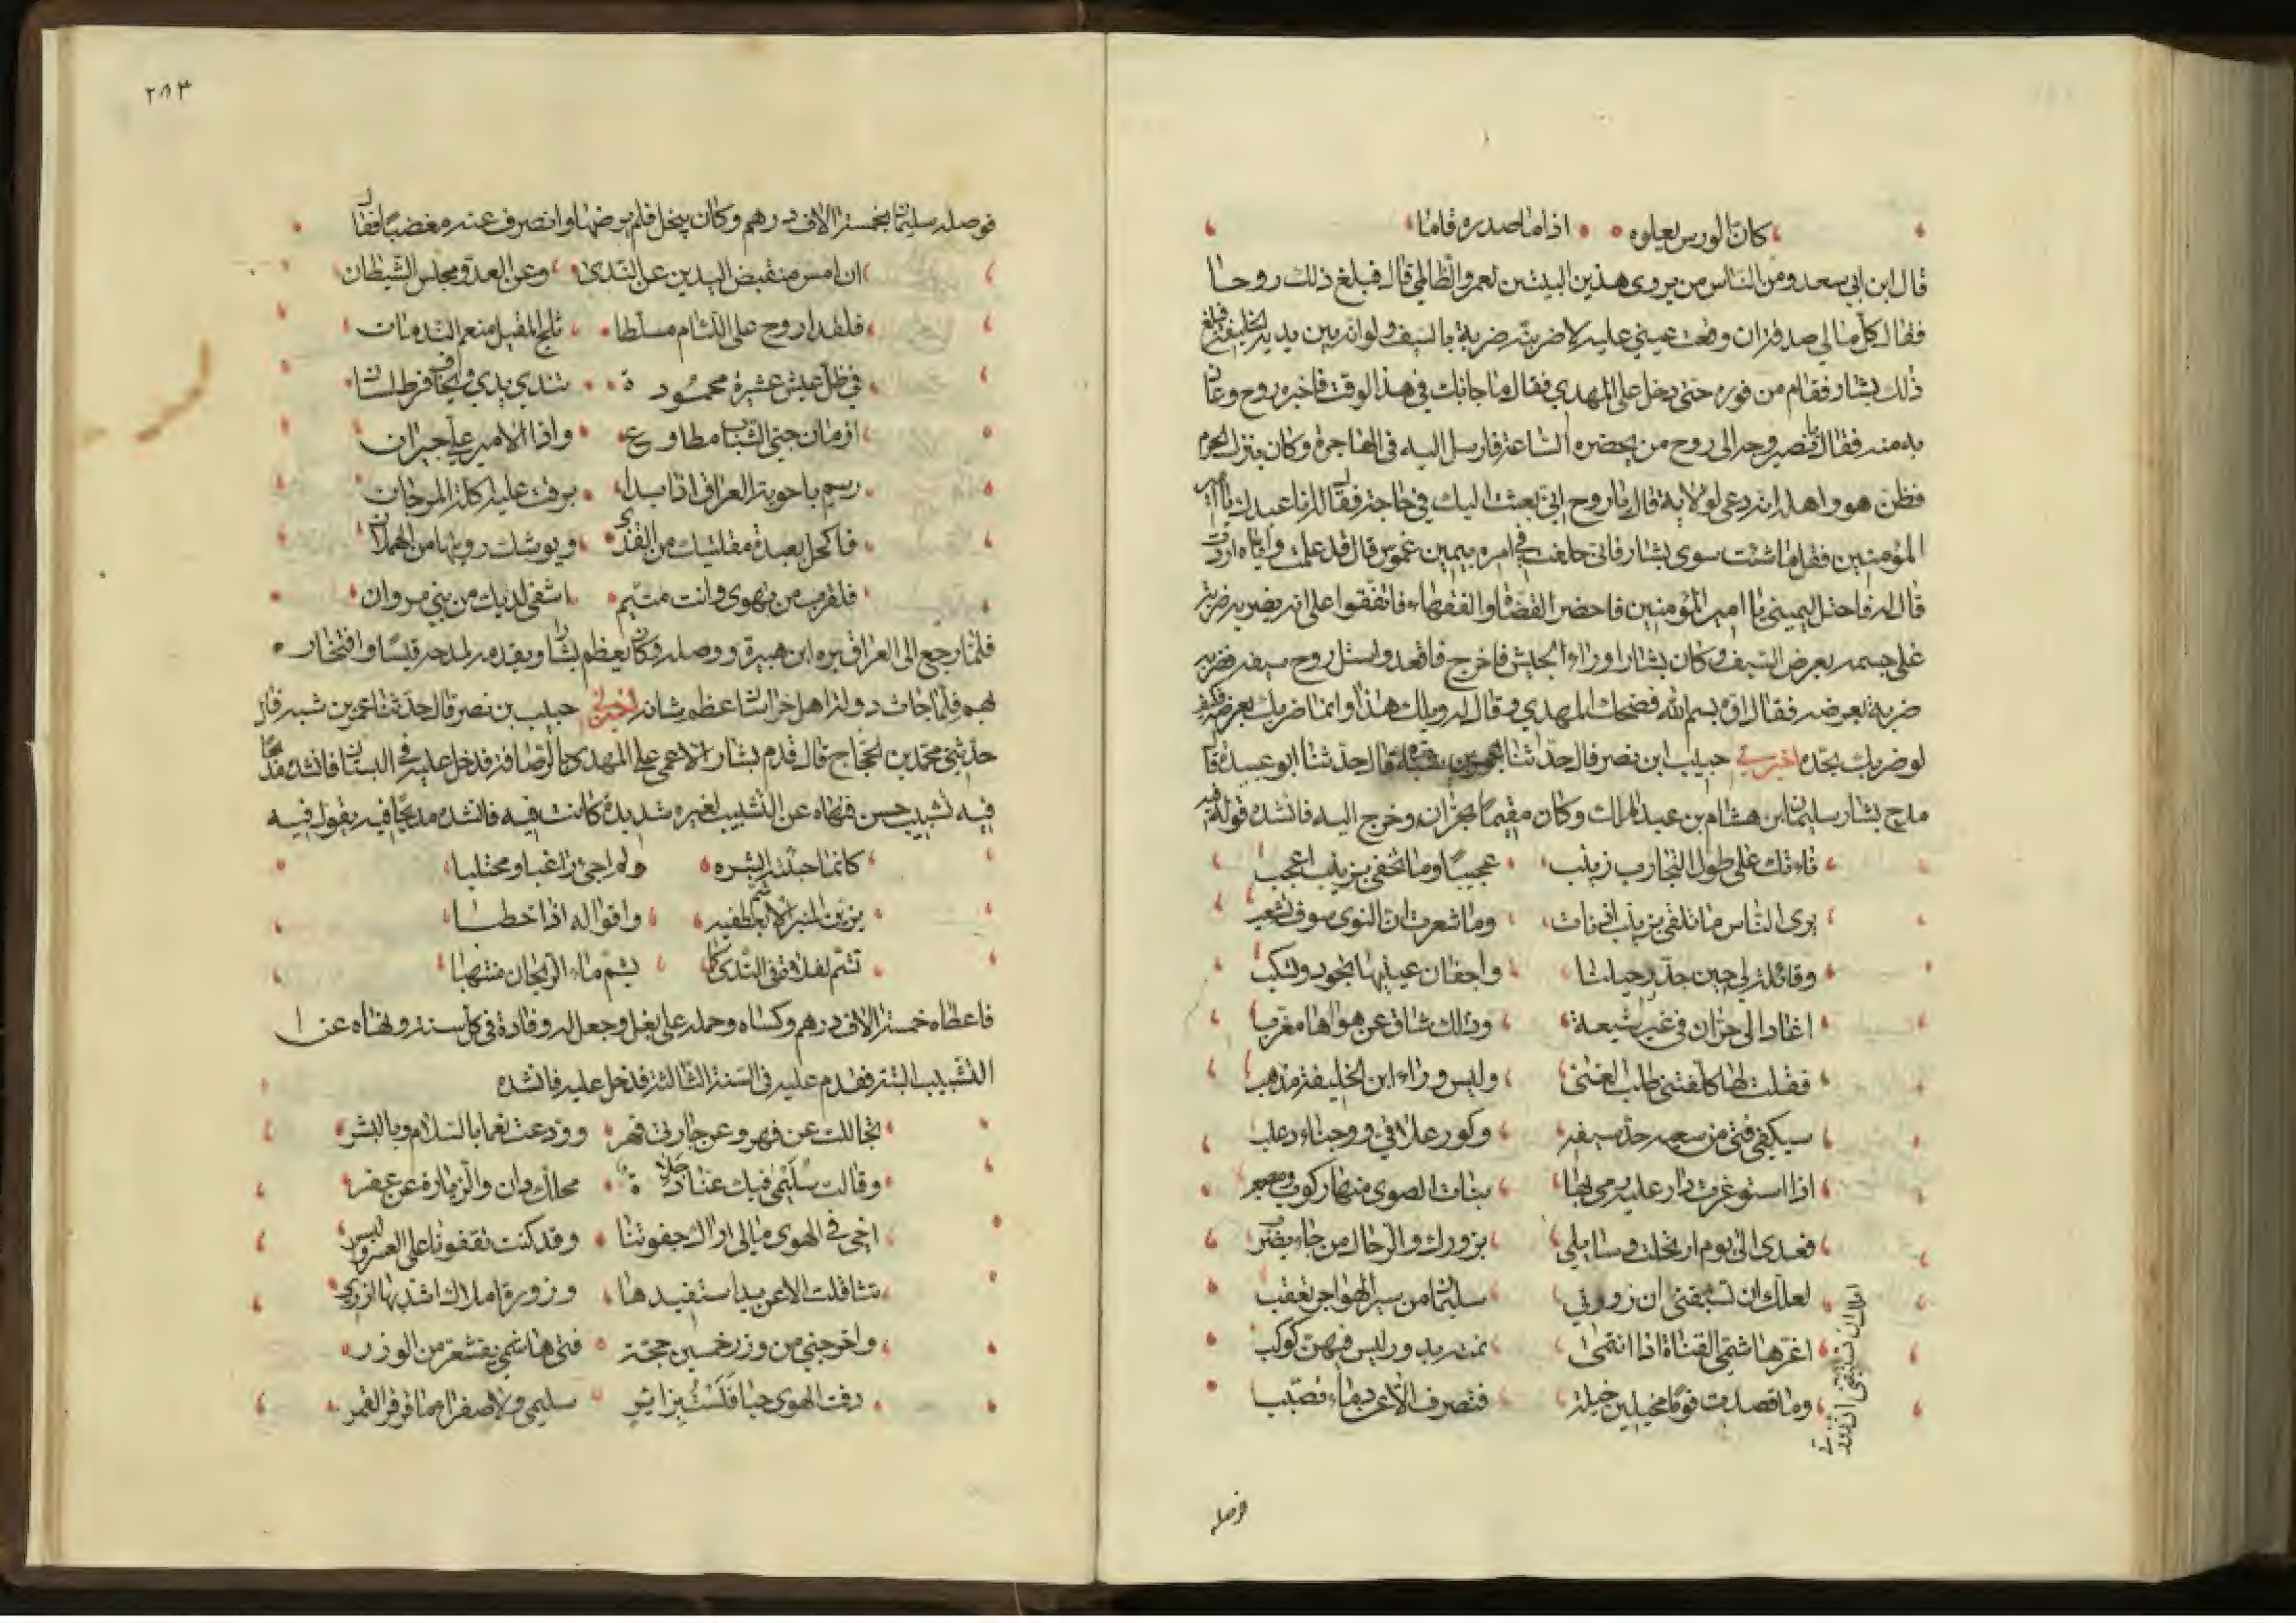 كان الورس يعلوه اذا ما صدره قاما
قال ابن ابي سعد ومن الناس من يروى هذين البيتين لعمرو الظالمي قال فبلغ ذلك روحا
فقال كل مالي صدقة ان وقعت عيني عليه لاضربنه ضربة بالسيف ولو انه بين يدي الخليفة فبلغ
ذلك بشار فقام من فوره حتى دخل على المهدي فقال ما جا بك في هذا الوقت فاخبره روح وعاذ
به منه فقال يا نصير وجه الى روح من يحضره الساعة فارسل اليه في الهاجرة وكان ينزل المخرم
فظن هو واهله انه دعى لولاية قال يا روح اني بعثت اليك في حاجة فقال له انا عبدك يا امير
المؤمنين فقل ما شئت سوى بشار فاني حلفت في امره بيمين غموس قال قد علمت واياه اردت
قال له فاحتل ليميني يا امير المؤمنين فاحضر القضاة والفقهاء فاتفقوا على انه يضربه ضربة
على جسمه بعرض السيف وكان بشار وراء الجيش فاخرج فاقعد واستل روح سيفه فضربه
ضربة بعرضه فقال اوه بسم الله فضحك المهدي وقال له ويلك هذا وانما ضربك بعرضه فكيف
لو ضربك بحده اخبرني حبيب ابن نصر قال حدثنا عمر بن شبة قال حدثنا ابو عبيدة قال
مدح بشار سليمان ابن هشام بن عبد الملك وكان مقيما بحران وخرج اليه فانشده قوله فيه
ناءتك على طول التجارب زينب عجيبا وما تخفى بزينب اعجب
يرى الناس ما تلقى بزينب اذ نات وما شعرت ان النوى سوف تشعب
وقائلة لي حين جد رحيلنا واجفان عينيها تجود وتسكب
اغاد الى حران في غير شيعة وذلك شاق عن هواها مغرب
فقلت لها كلفتني طلب الغنى وليس وراء ابن الخليفة مذهب
سيكفي فتى من سعيه حد سيفه وكور علافي ووجناء دعلب
اذا استوغرت دار عليه رمى بها بنات الصوى منها ركوب ومصعب
فعدى الى يوم ارتحلت وسايلي بزورك والرحال من جاء يضرب
لعلك ان تستيقني ان زورتي سليمان من سير الهواجر تعقب
اغر هاشمي القناة اذا انتمى نمته بدور ليس فيهن كوكب
وما قصدت قوما مخيلين خيله فتصرف الا عن دماء تصبب
فوصله
فوصله سليمان بخمسة الاف درهم وكان يبخل فلم يرضها وانصرف عنه مغضبا فقال
ان امس منقبض اليدين عن الندى وعن العدو مجلس الشيطان
فلقد اروح على اللئام مسلطا ثلج المقيل منعم الندمان
في ظل عيش عشيرة محمودة تندى يدي ويخاف فرط لساني
ازمان جنى الشباب مطاوع واذا الامير علي جيران
ريم باحوية العراق اذا بدا برقت عليه اكلة المرجان
فاكحل بعبدة مقلتيك من القذى وبوشك رؤيتها من الهملان
فلقرب من تهوى وانت متيم اشفى لديك من بني مروان
فلما رجع الى العراق بره ابن هبيرة ووصله وكان يعظم بشار ويقدمه لمدحه قيسا وافتخاره
بهم فلما جاءت دولة اهل خراسان عظم شانه اخبرني حبيب بن نصر قال حدثنا عمر بن شبه قال
حدثني محمد بن الحجاج قال قدم بشار الاعمى على المهدي بالرصافة فدخل عليه في البستان فانشده مدحا
فيه تشبيب حسن فنهاه عن التشبيب لغيره شديدة كانت فيه فانشده مديحا فيه يقول فيه
كانما جئته ابشره ولم اجئ راغبا ومحتلبا
يزين المنبر الاشم بعطفيه واقواله اذا خطبا
تشم نعلاه في الندى كما يشم ماء الريحان منتهبا
فاعطاه خمسة الاف درهم وكساه وحمله على بغل وجعل له وفادة في كل سنة ونهاه عن ا
التشبيب البتة فقدم عليه في السنة الثالثة فدخل عليه فانشده
تجاللت عن فهر وعن جارتي فهر وودعت نعما بالسلام وبالبشر
وقالت سليمى فيك عنا جلادة محلك دان والزيارة عن عفر
اخي في الهوى مالي اراك جفوتنا وقد كنت تقفونا على العسر واليسر
تثاقلت الا عن يد استفيدها وزورة املاك اشد بها ازري
واخرجني من وزر خمسين حجة فتى هاشمي يقشعر من الوزر
دفنت الهوى حيا فلست بزاير سليمى ولا صفرا ما قرقر القمر